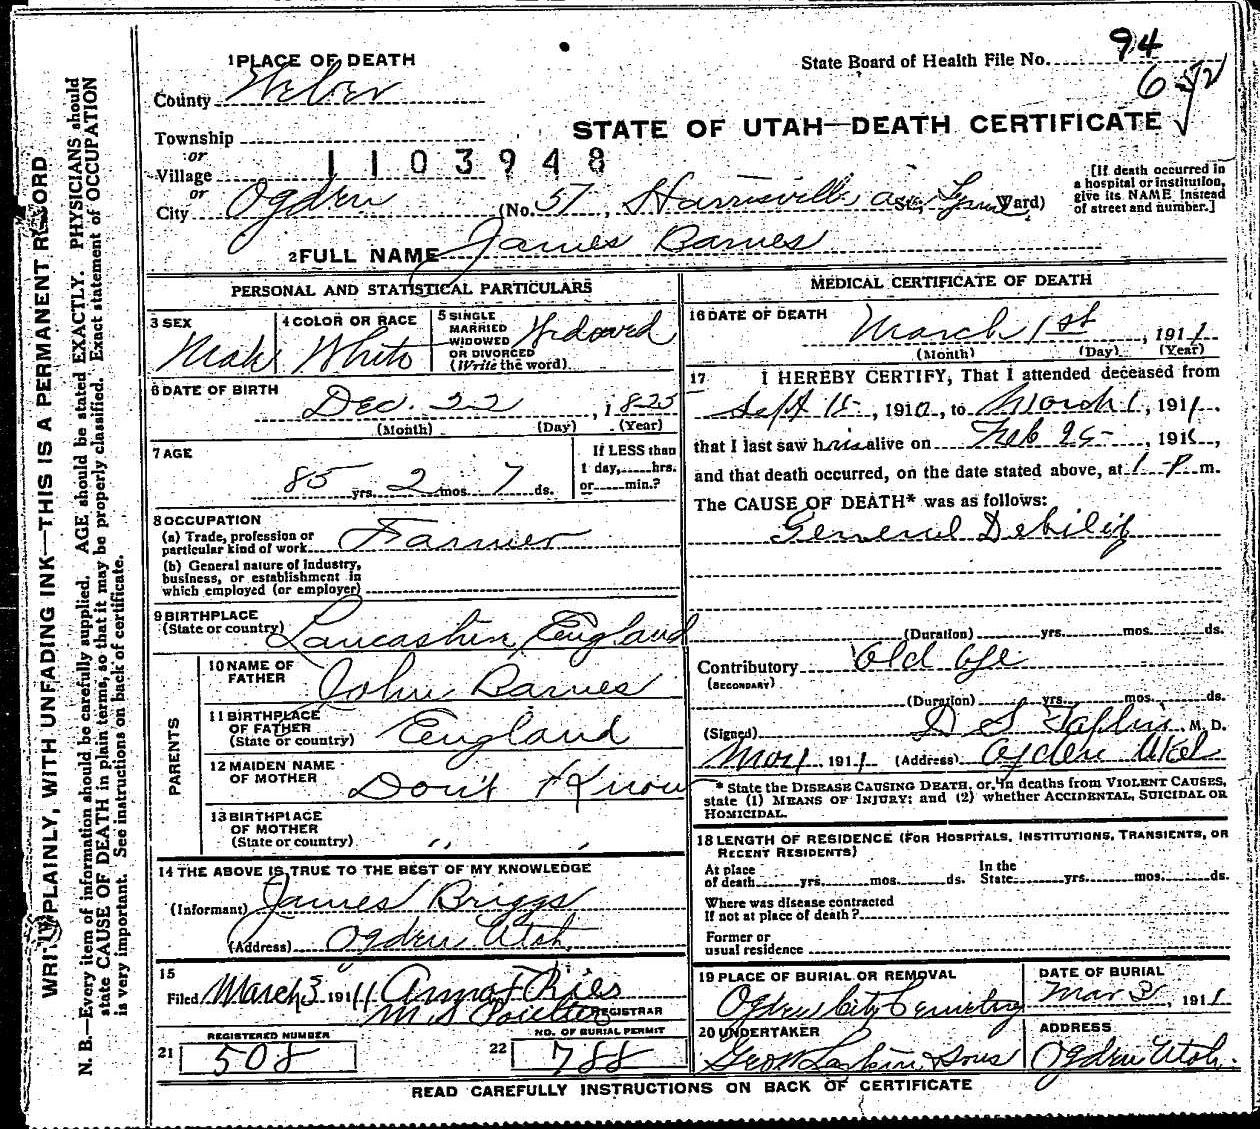 WRITE PLAINLY, WITH UNFADING INK—THIS IS A PERMANENT RECORD
N. B.—Every item of information should be carefully supplied. AGE should be stated EXACTLY. PHYSICIANS should
state CAUSE OF DEATH in plain terms, so that it may be properly classified. Exact statement of OCCUPATION
is very important. See instructions on back of certificate.
1 PLACE OF DEATH
State Board of Health File No. 94
6
County Weber
STATE OF UTAH—DEATH CERTIFICATE
Township
or
Village
1103948
or
City Ogden (No. 57, Harrisville av St., Lynne Ward)
[If death occurred in
a hospital or institution,
give its NAME instead
of street and number.]
2 FULL NAME James Barnes
PERSONAL AND STATISTICAL PARTICULARS
3 SEX
Male
4 COLOR OR RACE
White
5 SINGLE
MARRIED
WIDOWED
OR DIVORCED
(Write the word)
Widowed
6 DATE OF BIRTH
Dec. 22, 1825
(Month) (Day) (Year)
7 AGE
85 yrs. 2 mos. 7 ds.
If LESS than
1 day, hrs.
or min.?
8 OCCUPATION
(a) Trade, profession or
particular kind of work Farmer
(b) General nature of Industry,
business, or establishment in
which employed (or employer)
9 BIRTHPLACE
(State or country) Lancashire, England
PARENTS
10 NAME OF
FATHER
John Barnes
11 BIRTHPLACE
OF FATHER
(State or country)
England
12 MAIDEN NAME
OF MOTHER
Don't Know
13 BIRTHPLACE
OF MOTHER
(State or country)
" "
14 THE ABOVE IS TRUE TO THE BEST OF MY KNOWLEDGE
(Informant) James Briggs
(Address) Ogden Utah.
15
Filed March 3 1911
REGISTRAR
REGISTERED NUMBER
21 508
NO. OF BURIAL PERMIT
22 788
MEDICAL CERTIFICATE OF DEATH
16 DATE OF DEATH
March 1st, 1911
(Month) (Day) (Year)
17 I HEREBY CERTIFY, That I attended deceased from
Sept 15, 1910, to March 1, 1911.
that I last saw him alive on Feb 25, 1911,
and that death occurred, on the date stated above, at 1-P. m.
The CAUSE OF DEATH* was as follows:
General Debility
(Duration) yrs. mos. ds.
Contributory Old age
(SECONDARY)
(Duration) yrs. mos. ds.
(Signed) D. S. M. D.
Mar 1 1911 (Address) Ogden Utah
* State the DISEASE CAUSING DEATH, or, in deaths from VIOLENT CAUSES,
state (1) MEANS OF INJURY; and (2) whether ACCIDENTAL, SUICIDAL OR
HOMICIDAL.
18 LENGTH OF RESIDENCE (FOR HOSPITALS, INSTITUTIONS, TRANSIENTS, OR
RECENT RESIDENTS)
At place
of death yrs. mos. ds.
In the
State yrs. mos. ds.
Where was disease contracted
if not at place of death?
Former or
usual residence
19 PLACE OF BURIAL OR REMOVAL
Ogden City Cemetery
DATE OF BURIAL
Mar 3, 1911
20 UNDERTAKER
Geo W Larkin & Sons
ADDRESS
Ogden Utah.
READ CAREFULLY INSTRUCTIONS ON BACK OF CERTIFICATE